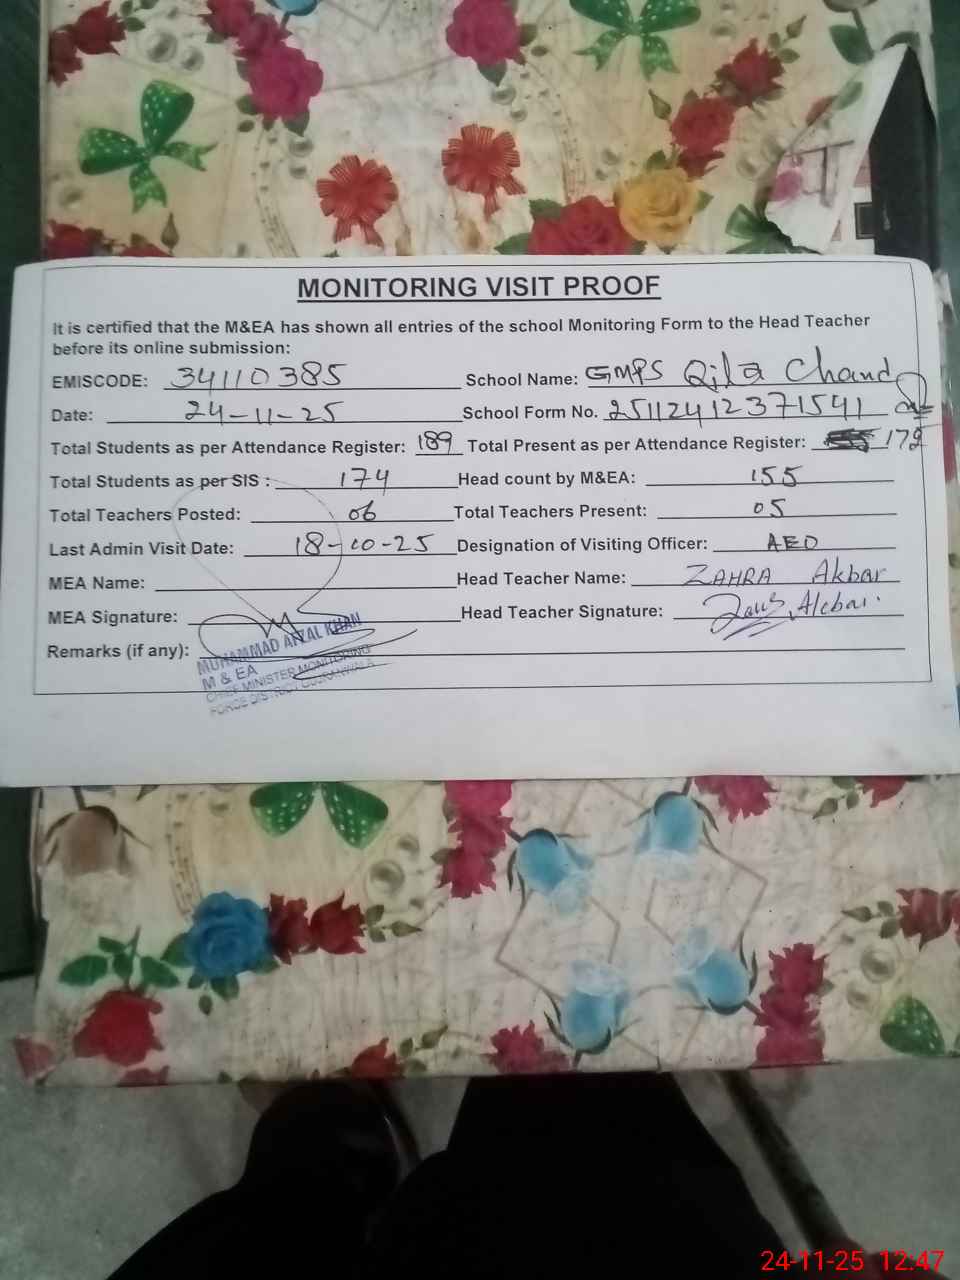 MONITORING VISIT PROOF
It is certified that the M&EA has shown all entries of the school Monitoring Form to the Head Teacher
before its online submission:
EMISCODE: 34110385 School Name: GMPS Qila Chand
Date: 24-11-25 School Form No. 251124112371541
Total Students as per Attendance Register: 189 Total Present as per Attendance Register: 172
Total Students as per SIS : 174 Head count by M&EA: 155
Total Teachers Posted: 06 Total Teachers Present: 05
Last Admin Visit Date: 18-10-25 Designation of Visiting Officer: AEO
MEA Name: Head Teacher Name: ZAHRA Akbar
MEA Signature: Head Teacher Signature: Akbar.
Remarks (if any):
MUHAMMAD AFZAL KHAN
M & EA
CHIEF MINISTER MONITORING
FORCE DISTRICT GUJRANWALA
24-11-25 12:47